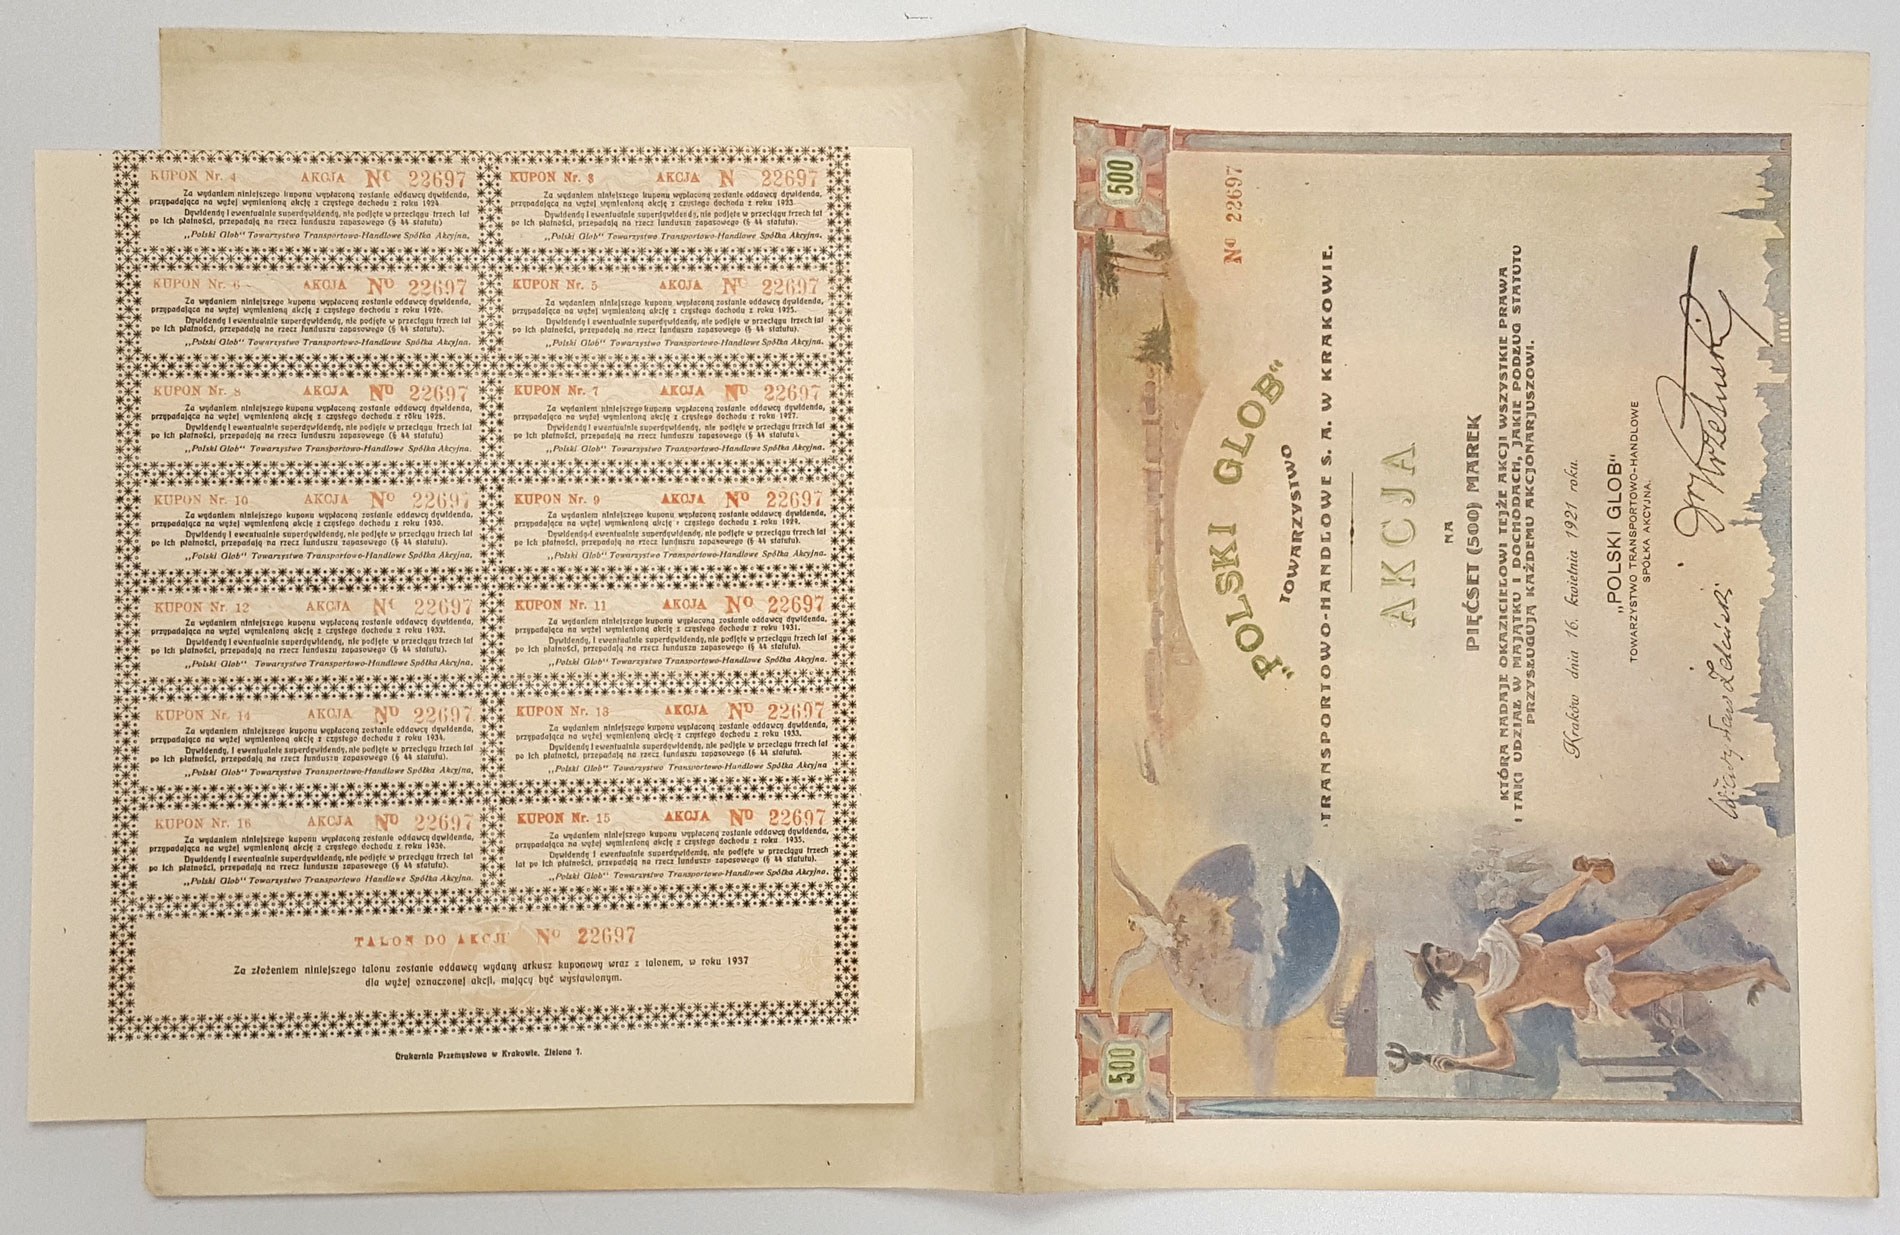 KUPON Nr. 4 AKCJA No 22697
Za wydaniem niniejszego kuponu wypłaconą zostanie oddawcy dywidenda,
przypadająca na wyżej wymienioną akcję z czystego dochodu z roku 1924.
Dywidendy i ewentualnie superdywidendy, nie podjęte w przeciągu trzech lat
po ich płatności, przepadają na rzecz funduszu zapasowego (§ 44 statutu)
„Polski Glob“ Towarzystwo Transportowo-Handlowe Spółka Akcyjna.
KUPON Nr. 3 AKCJA N 22697
Za wydaniem niniejszego kuponu wypłaconą zostanie oddawcy dywidenda,
przypadająca na wyżej wymienioną akcję z czystego dochodu z roku 1923.
Dywidendy i ewentualnie superdywidendy, nie podjęte w przeciągu trzech lat
po ich płatności, przepadają na rzecz funduszu zapasowego (§ 44 statutu).
„Polski Glob“ Towarzystwo Transportowo-Handlowe Spółka Akcyjna.
KUPON Nr. 6 AKCJA No 22697
Za wydaniem niniejszego kuponu wypłaconą zostanie oddawcy dywidenda,
przypadająca na wyżej wymienioną akcję z czystego dochodu z roku 1926.
Dywidendy i ewentualnie superdywidendy, nie podjęte w przeciągu trzech lat
po ich płatności, przepadają na rzecz funduszu zapasowego (§ 44 statutu).
„Polski Glob“ Towarzystwo Transportowo-Handlowe Spółka Akcyjna.
KUPON Nr. 5 AKCJA No 22697
Za wydaniem niniejszego kuponu wypłaconą zostanie oddawcy dywidenda,
przypadająca na wyżej wymienioną akcję z czystego dochodu z roku 1925.
Dywidendy i ewentualnie superdywidendy, nie podjęte w przeciągu trzech lat
po ich płatności, przepadają na rzecz funduszu zapasowego (§ 44 statutu).
„Polski Glob“ Towarzystwo Transportowo-Handlowe Spółka Akcyjna.
KUPON Nr. 8 AKCJA No 22697
Za wydaniem niniejszego kuponu wypłaconą zostanie oddawcy dywidenda,
przypadająca na wyżej wymienioną akcję z czystego dochodu z roku 1928.
Dywidendy i ewentualnie superdywidendy, nie podjęte w przeciągu trzech lat
po ich płatności, przepadają na rzecz funduszu zapasowego (§ 44 statutu)
„Polski Glob“ Towarzystwo Transportowo-Handlowe Spółka Akcyjna.
KUPON Nr. 7 AKCJA No 22697
Za wydaniem niniejszego kuponu wypłaconą zostanie oddawcy dywidenda,
przypadająca na wyżej wymienioną akcję z czystego dochodu z roku 1927.
Dywidendy i ewentualnie superdywidendy, nie podjęte w przeciągu trzech lat
po ich płatności, przepadają na rzecz funduszu zapasowego (§ 44 statutu).
„Polski Glob“ Towarzystwo Transportowo-Handlowe Spółka Akcyjna.
KUPON Nr. 10 AKCJA No 22697
Za wydaniem niniejszego kuponu wypłaconą zostanie oddawcy dywidenda,
przypadająca na wyżej wymienioną akcję z czystego dochodu z roku 1930.
Dywidendy i ewentualnie superdywidendy, nie podjęte w przeciągu trzech lat
po ich płatności, przepadają na rzecz funduszu zapasowego (§ 44 statutu).
„Polski Glob“ Towarzystwo Transportowo-Handlowe Spółka Akcyjna,
KUPON Nr. 9 AKCJA No 22697
Za wydaniem niniejszego kuponu wypłaconą zostanie oddawcy dywidenda,
przypadająca na wyżej wymienioną akcję z czystego dochodu z roku 1929.
Dywidendy i ewentualnie superdywidendy, nie podjęte w przeciągu trzech lat
po ich płatności, przepadają na rzecz funduszu zapasowego (§ 44 statutu).
„Polski Glob“ Towarzystwo Transportowo-Handlowe Spółka Akcyjna.
KUPON Nr. 12 AKCJA No 22697
Za wydaniem niniejszego kuponu wypłaconą zostanie oddawcy dywidenda,
przypadająca na wyżej wymienioną akcję z czystego dochodu z roku 1932.
Dywidendy i ewentualnie superdywidendy, nie podjęte w przeciągu trzech lat
po ich płatności, przepadają na rzecz funduszu zapasowego (§ 44 statutu).
„Polski Glob“ Towarzystwo Transportowo-Handlowe Spółka Akcyjna.
KUPON Nr. 11 AKCJA No 22697
Za wydaniem niniejszego kuponu wypłaconą zostanie oddawcy dywidenda,
przypadająca na wyżej wymienioną akcję z czystego dochodu z roku 1931.
Dywidendy i ewentualnie superdywidendy, nie podjęte w przeciągu trzech lat
po ich płatności, przepadają na rzecz funduszu zapasowego (§ 44 statutu).
„Polski Glob“ Towarzystwo Transportowo-Handlowe Spółka Akcyjna.
KUPON Nr. 14 AKCJA No 22697
Za wydaniem niniejszego kuponu wypłaconą zostanie oddawcy dywidenda,
przypadająca na wyżej wymienioną akcję z czystego dochodu z roku 1934.
Dywidendy, i ewentualnie superdywidendy, nie podjęte w przeciągu trzech lat
po ich płatności, przepadają na rzecz funduszu zapasowego (§ 44 statutu).
„Polski Glob“ Towarzystwo Transportowo-Handlowe Spółka Akcyjna,
KUPON Nr. 13 AKCJA No 22697
Za wydaniem niniejszego kuponu wypłaconą zostanie oddawcy dywidenda,
przypadająca na wyżej wymienioną akcję z czystego dochodu z roku 1933.
Dywidendy i ewentualnie superdywidendy, nie podjęte w przeciągu trzech lat
po ich płatności, przepadają na rzecz funduszu zapasowego (§ 44 statutu).
„Polski Glob“ Towarzystwo Transportowo-Handlowe Spółka Akcyjna.
KUPON Nr. 16 AKCJA No 22697
Za wydaniem niniejszego kuponu wypłaconą zostanie oddawcy dywidenda,
przypadająca na wyżej wymienioną akcję z czystego dochodu z roku 1936.
Dywidendy i ewentualnie superdywidendy, nie podjęte w przeciągu trzech lat
po ich płatności, przepadają na rzecz funduszu zapasowego (§ 44 statutu).
„Polski Glob“ Towarzystwo Transportowo Handlowe Spółka Akcyjna.
KUPON Nr. 15 AKCJA No 22697
Za wydaniem niniejszego kuponu wypłaconą zostanie oddawcy dywidenda,
przypadająca na wyżej wymienioną akcję z czystego dochodu z roku 1935.
Dywidendy i ewentualnie superdywidendy, nie podjęte w przeciągu trzech
lat po ich płatności, przepadają na rzecz funduszu zapasowego (§ 44 statutu).
„Polski Glob“ Towarzystwo Transportowo-Handlowe Spółka Akcyjna,
TALON DO AKCJI No 22697
Za złożeniem niniejszego talonu zostanie oddawcy wydany arkusz kuponowy wraz z talonem, w roku 1937
dla wyżej oznaczonej akcji, mający być wystawionym.
Drukarnia Przemysłowa w Krakowie, Zielona 7.
500
500
No 22697
„POLSKI GLOB“
TOWARZYSTWO
TRANSPORTOWO-HANDLOWE S. A. W KRAKOWIE.
AKCJA
NA
PIĘĆSET (500) MAREK
KTÓRA NADAJE OKAZICIELOWI TEJŻE AKCJI WSZYSTKIE PRAWA
I TAKI UDZIAŁ W MAJĄTKU I DOCHODACH, JAKIE PODŁUG STATUTU
PRZYSŁUGUJĄ KAŻDEMU AKCJONARJUSZOWI.
Kraków dnia 16. kwietnia 1921 roku.
„POLSKI GLOB“
TOWARZYSTWO TRANSPORTOWO-HANDLOWE
SPÓŁKA AKCYJNA.